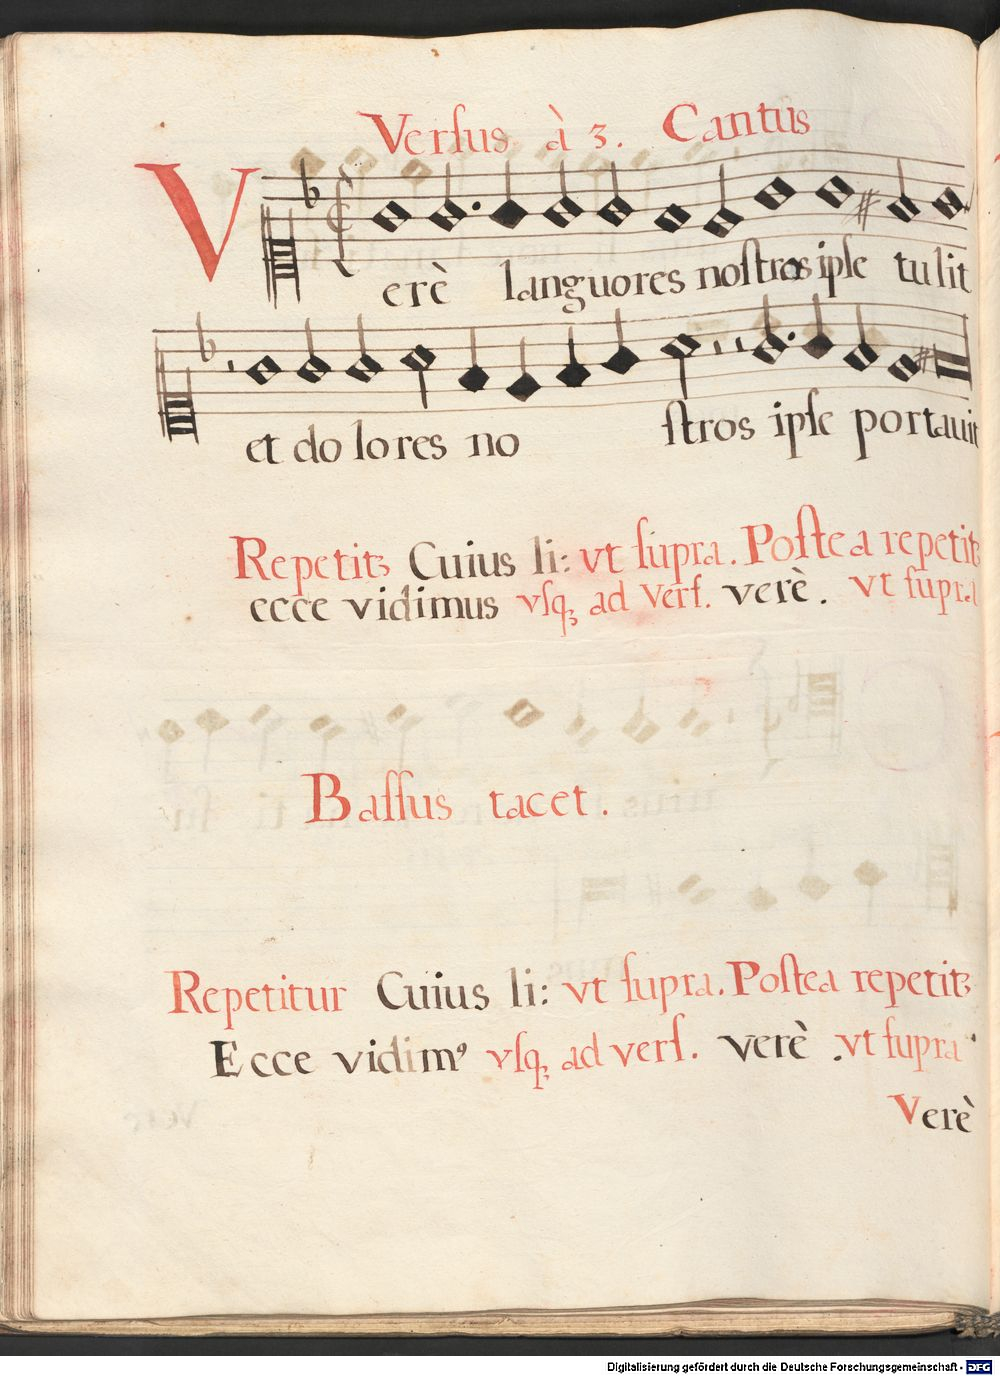 Verſus à 3. Cantus
Verè languores noſtros ipſe tulit
et do lo res no ſtros ipſe portauit
Repetitꝫ Cuius li: vt ſupra. Poſtea repetitꝫ
ecce vidimus vſqꝫ ad Verſ. verè. vt ſupra
Baſſus tacet.
Repetitur Cuius li: vt ſupra. Poſtea repetitꝫ
Ecce vidimꝰ vſqꝫ ad verſ. verè. vt ſupra
Verè
Digitalisierung gefördert durch die Deutsche Forschungsgemeinschaft - DFG